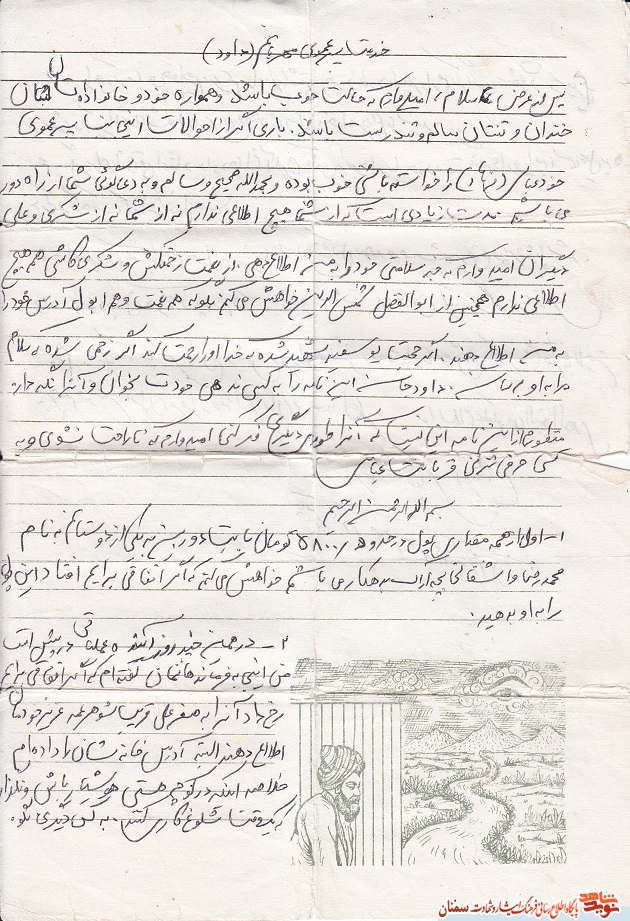 خدمت پسر عموی مهربانم (داود)
پس از عرض سلام، امیدوارم که حالت خوب باشد و همواره خود و خانواده تان لبتان
خندان و تنتان سالم و تندرست باشد. باری اگر از احوالات اینجانب پسر عموی
خود عباس را خواسته باشی خوب بوده و بحمدالله صحیح و سالم و به دعاگوئی شما از راه دور
می باشیم. مدت زیادی است که از شما هیچ اطلاعی ندارم نه از شما نه از شکری و علی
دیگران امیدوارم که خبر سلامتی خود را به من اطلاع دهی. از نعمت زحمتکش و شکری کاشی هم هیچ
اطلاعی ندارم همچنین از ابوالفضل شمس الدین خواهش می کنم بگو که هم نعمت و هم ابول آدرس خود را
به من اطلاع دهند. اگر حجت یوسفیه شهید شده که خدا او را رحمت کند اگر زخمی شده که سلام
مرا به او برسان. داود جان این نامه را به کسی ندهی خودت بخوان و آنرا نگه دار
منظورم از این نامه این نیست که آنرا طور دیگری فکر کنی امیدوارم که ناراحت نشوی و به
کسی حرفی نزنی قربانت عباس
بسم الله الرحمن الرحیم
۱- اول از همه مقداری پول در حدود ۵۸۰۰ تومان بابت به یکی از دوستانم به نام
محمد رضا بچه اراک بدهکار می باشم خواهش می کنم که اگر اتفاقی برایم افتاد این پول
را به او بدهید.
۲- در همین چند روز آینده عملیاتی در پیش است
من اینجا به فرماندهانمان گفته ام که اگر اتفاقی برایم
رخ داد آنرا به صفر علی شوهر عمه عزیز خودمان
اطلاع دهند البته آدرس خانه شان را داده ام
خلاصه اینکه در کوچه هستی هوشیار باش و نگذار
که یکوقت شلوغ کاری کنند. به کس دیگری نگو.
نوید شاهد
پایگاه اطلاع رسانی فرهنگ ایثار و شهادت سمنان